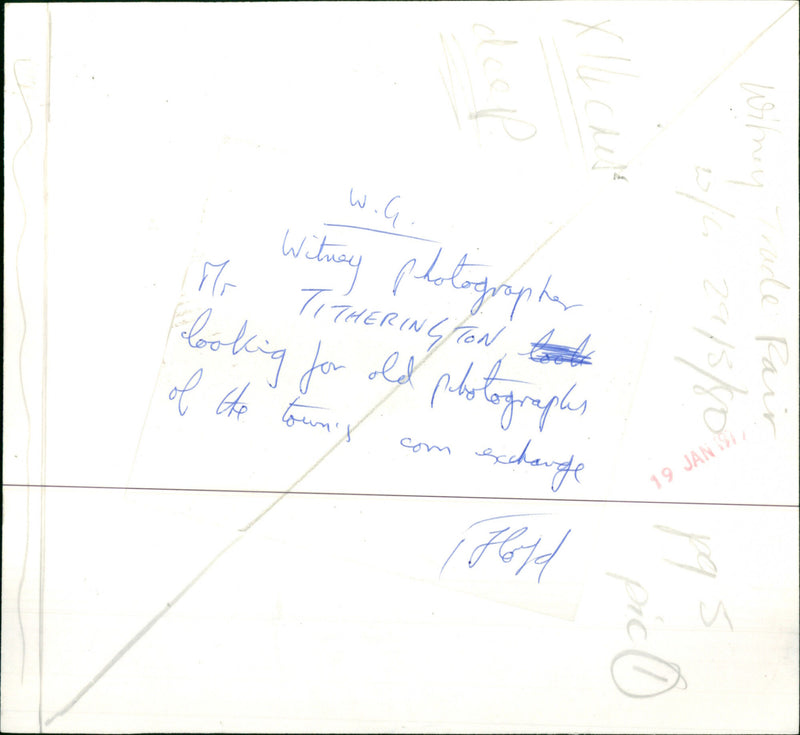 W.G.
Witney photographer
Mr TITHERINGTON
looking for old photographs
of the town's corn exchange
TFloyd
Witney Trade Fair
w/e 27/5/80
19 JAN 1977
pg 5
pic 1
X 14 cms
deep.